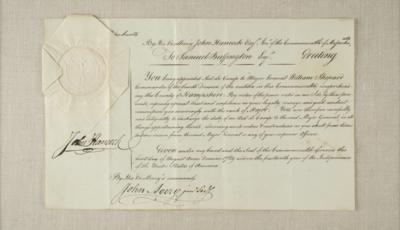 By His Excellency John Hancock Esqr. Govr. of the Commonwealth of
To Samuel Buffington Esqr. Greeting
You being appointed Aid de Camp to Major General William Shepard
Commander of the fourth Division of the militia in this Commonwealth comprehending
the County of Hampshire By virtue of the power vested in me I do by these pre-
sents, reposing special trust and confidence in your loyalty, courage and good conduct
you accordingly with the rank of Major You are therefore carefully
and diligently to discharge the duty of an Aid de Camp to the said Major General in all
things appertaining thereto, observing such orders & instructions as you shall from time
to time receive from the said Major General or any of your superior Officers
Given under my hand and the Seal of the Commonwealth aforesaid this
first day of August Anno Domini 1789 and in the fourteenth year of the Independence
of the United States of America
John Hancock
By His Excellency's command
John Avery junr. Secy.